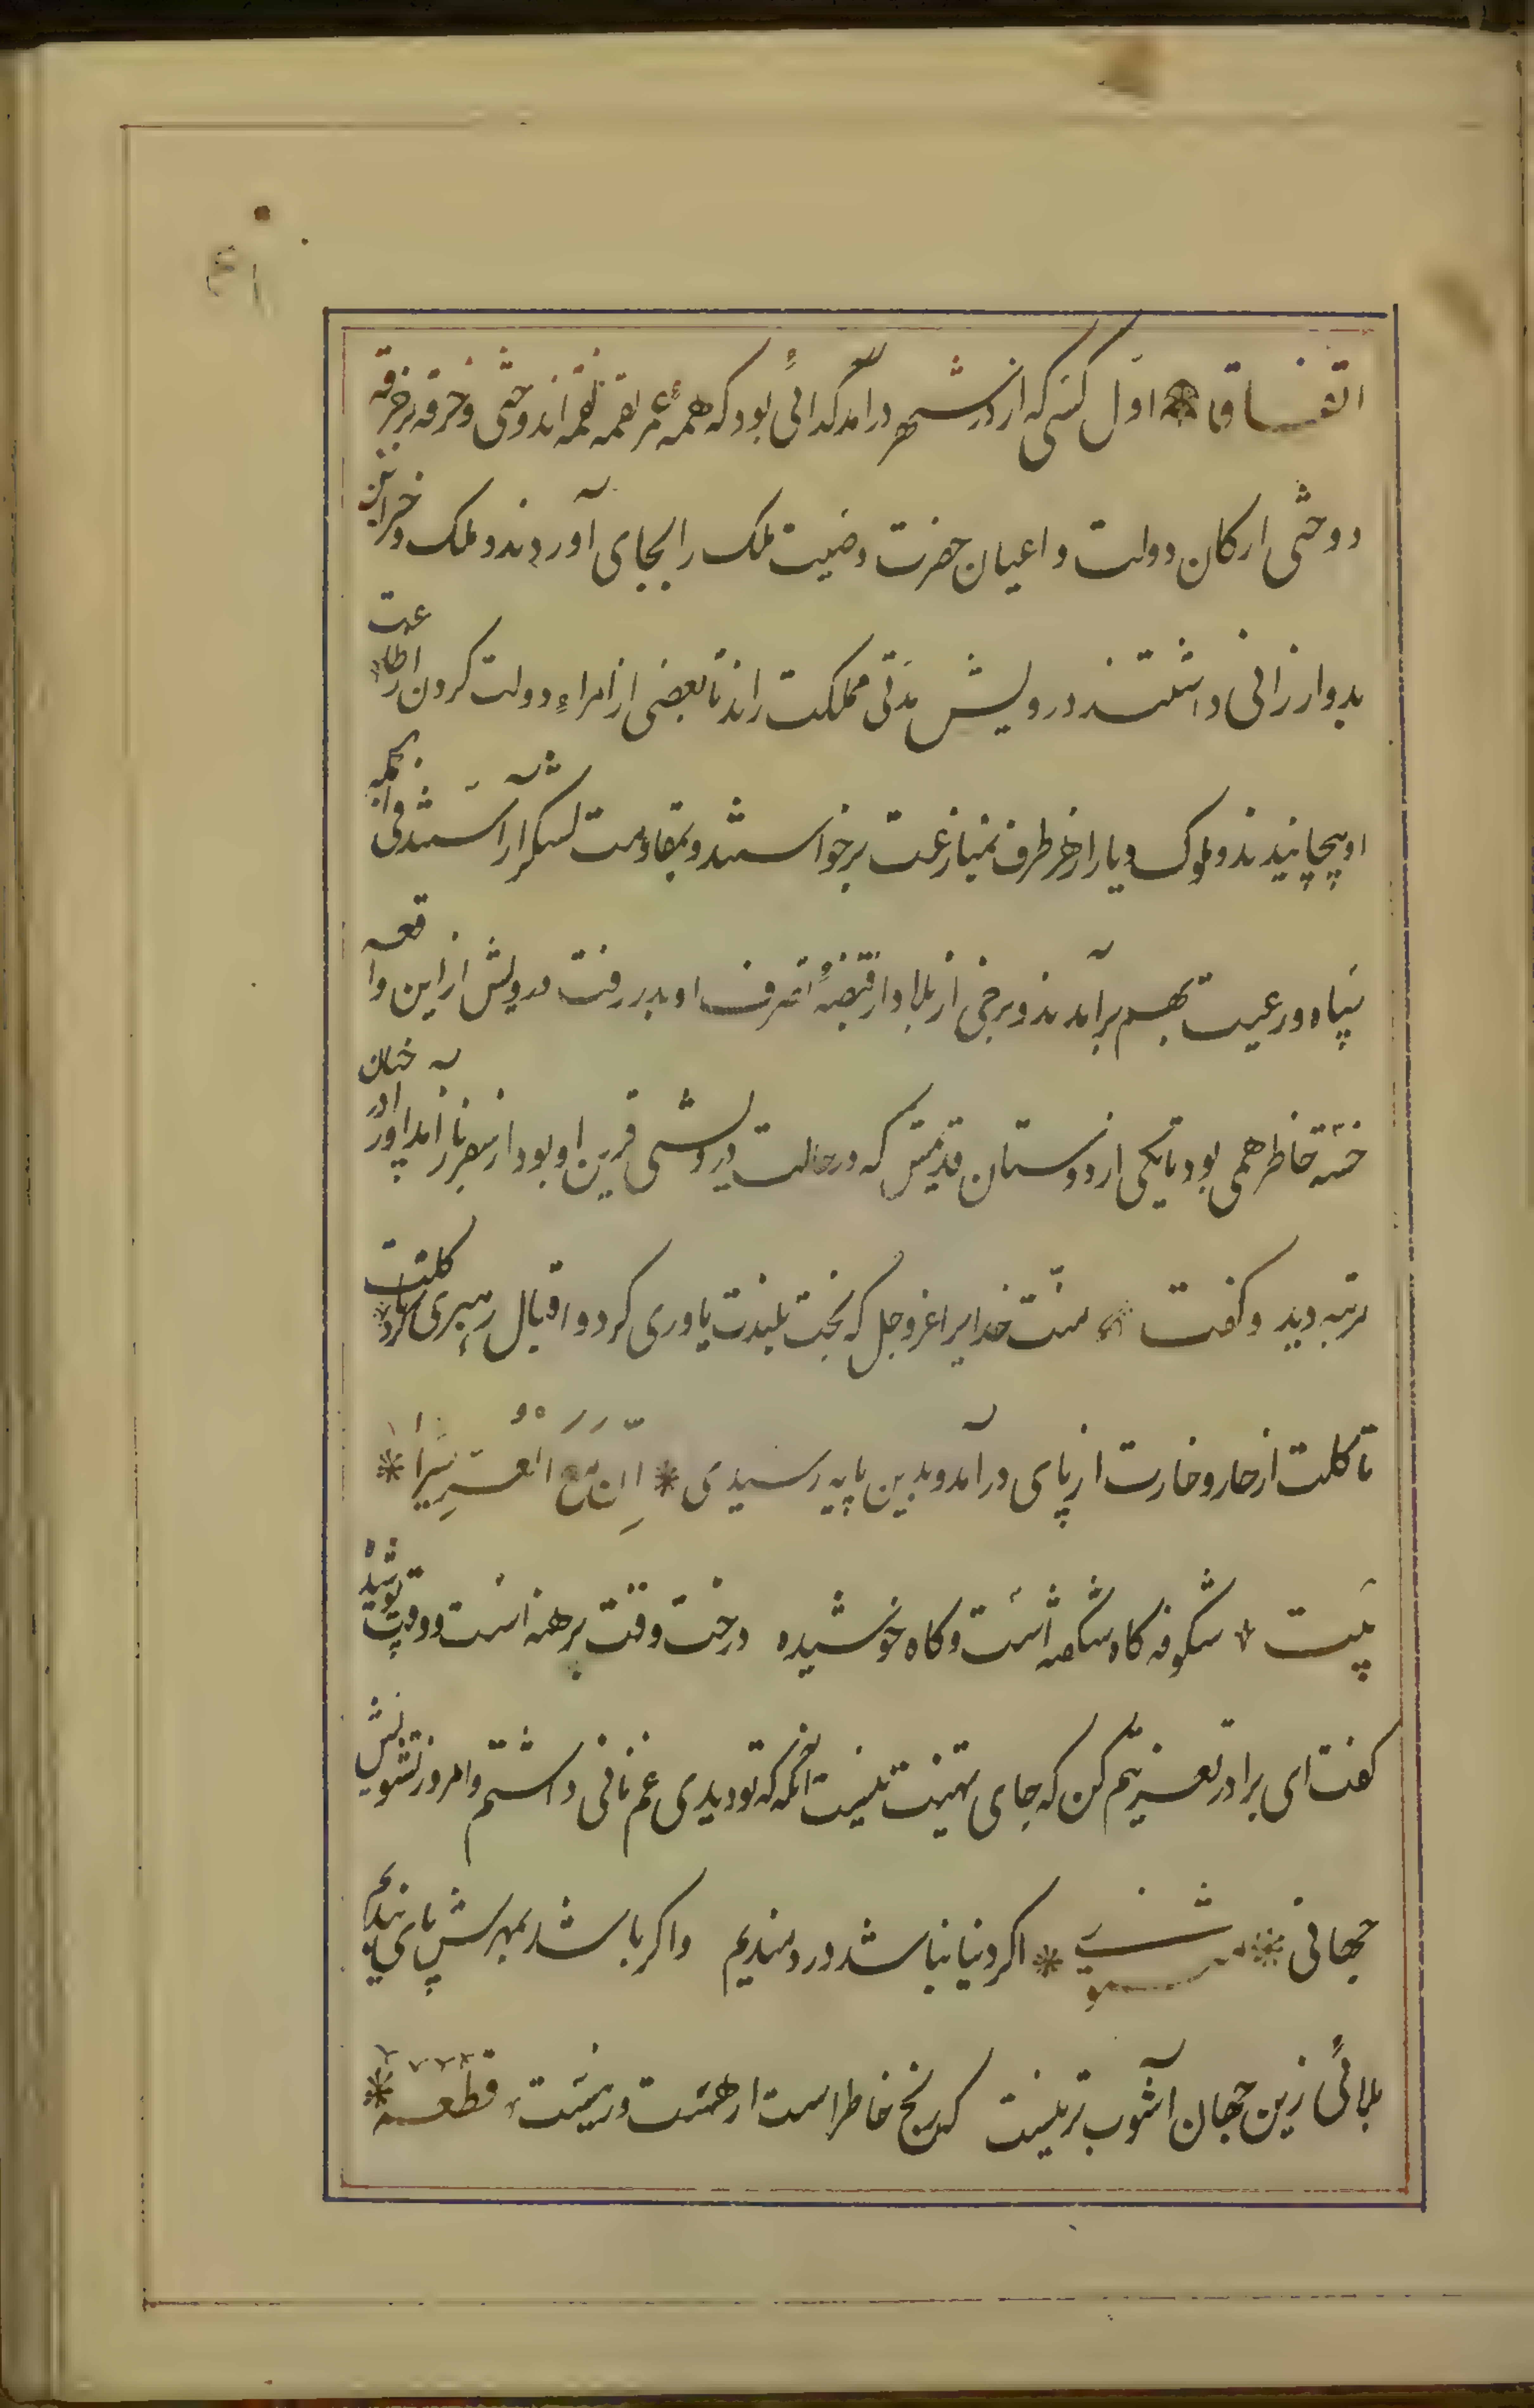 ۴۱
اتفاقا اوّل کسی که از در شهر درآمد کدائی بود که همه عمر لقمه لقمه اندوختی و خرقه بر خرقه
دوختی ارکان دولت و اعیان حضرت وصیت ملک را بجای آوردند و ملک و خزاین
بدو ارزانی داشتند درویش مدّتی مملکت راند تا بعضی از امراء دولت کردن از اطاعت
او بپیچانیدند و ملوک دیار از هر طرف بمنازعت برخواستند و بمقاومت لشکر آراستند فی الجمله
سپاه و رعیت بهم برآمدند و برخی از بلاد از قبضهٔ تصرف او بدر رفت درویش از این واقعه
خسته خاطر همی بود تا یکی از دوستان قدیمش که در حالت درویشی قرین او بود از سفر باز آمد او را در چنان
مرتبه دید و کفت منّت خدایرا عزوجل که بخت بلندت یاوری کرد و اقبال رهبری کرد
تا کلت از خار و خارت از پای درآمد و بدین پایه رسیدی * اِنَّ مَعَ العُسْرِ یُسْراً *
بیت * شکوفه کاه شکفته است و کاه خوشیده درخت وقت برهنه است و وقت پوشیده
کفت ای برادر تعزیتم کن که جای تهنیت نیست آنکه که تو دیدی غم نانی داشتم و امروز تشویش
جهانی * مثنوی * اکر دنیا نباشد دردمندیم واکر باشد بمهرش پای بندیم
بلائی زین جهان آشوب تر نیست که رنج خاطر است ار هست ور نیست قطعه *